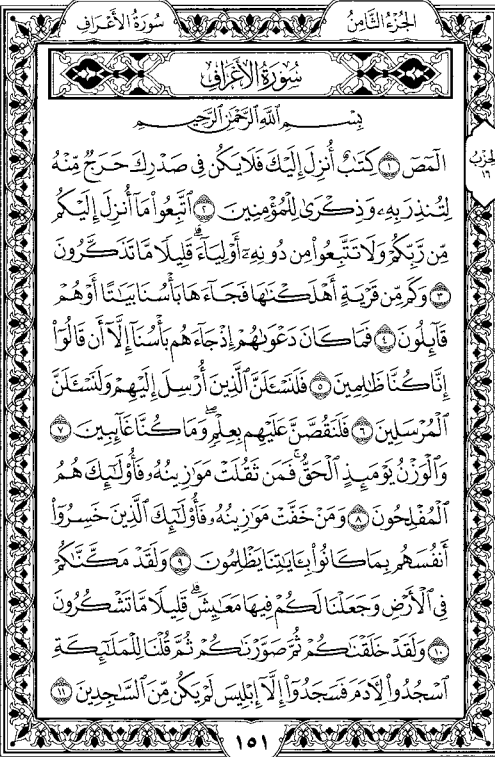 سُورَةُ الأَعْرَافِ الجُزْءُ الثَّامِنُ
سُورَةُ الأَعْرَافِ
بِسْمِ ٱللَّهِ ٱلرَّحْمَٰنِ ٱلرَّحِيمِ
الٓمٓصٓ ١ كِتَٰبٌ أُنزِلَ إِلَيْكَ فَلَا يَكُن فِي صَدْرِكَ حَرَجٌ مِّنْهُ
الحِزْبُ
١٦
لِتُنذِرَ بِهِۦ وَذِكْرَىٰ لِلْمُؤْمِنِينَ ٢ ٱتَّبِعُوا۟ مَآ أُنزِلَ إِلَيْكُم
مِّن رَّبِّكُمْ وَلَا تَتَّبِعُوا۟ مِن دُونِهِۦٓ أَوْلِيَآءَۗ قَلِيلًا مَّا تَذَكَّرُونَ
٣ وَكَم مِّن قَرْيَةٍ أَهْلَكْنَٰهَا فَجَآءَهَا بَأْسُنَا بَيَٰتًا أَوْ هُمْ
قَآئِلُونَ ٤ فَمَا كَانَ دَعْوَىٰهُمْ إِذْ جَآءَهُم بَأْسُنَآ إِلَّآ أَن قَالُوٓا۟
إِنَّا كُنَّا ظَٰلِمِينَ ٥ فَلَنَسْـَٔلَنَّ ٱلَّذِينَ أُرْسِلَ إِلَيْهِمْ وَلَنَسْـَٔلَنَّ
ٱلْمُرْسَلِينَ ٦ فَلَنَقُصَّنَّ عَلَيْهِم بِعِلْمٍۖ وَمَا كُنَّا غَآئِبِينَ ٧
وَٱلْوَزْنُ يَوْمَئِذٍ ٱلْحَقُّۚ فَمَن ثَقُلَتْ مَوَٰزِينُهُۥ فَأُو۟لَٰٓئِكَ هُمُ
ٱلْمُفْلِحُونَ ٨ وَمَنْ خَفَّتْ مَوَٰزِينُهُۥ فَأُو۟لَٰٓئِكَ ٱلَّذِينَ خَسِرُوٓا۟
أَنفُسَهُم بِمَا كَانُوا۟ بِـَٔايَٰتِنَا يَظْلِمُونَ ٩ وَلَقَدْ مَكَّنَّٰكُمْ
فِي ٱلْأَرْضِ وَجَعَلْنَا لَكُمْ فِيهَا مَعَٰيِشَۗ قَلِيلًا مَّا تَشْكُرُونَ
١٠ وَلَقَدْ خَلَقْنَٰكُمْ ثُمَّ صَوَّرْنَٰكُمْ ثُمَّ قُلْنَا لِلْمَلَٰٓئِكَةِ
ٱسْجُدُوا۟ لِـَٔادَمَ فَسَجَدُوٓا۟ إِلَّآ إِبْلِيسَ لَمْ يَكُن مِّنَ ٱلسَّٰجِدِينَ ١١
١٥١